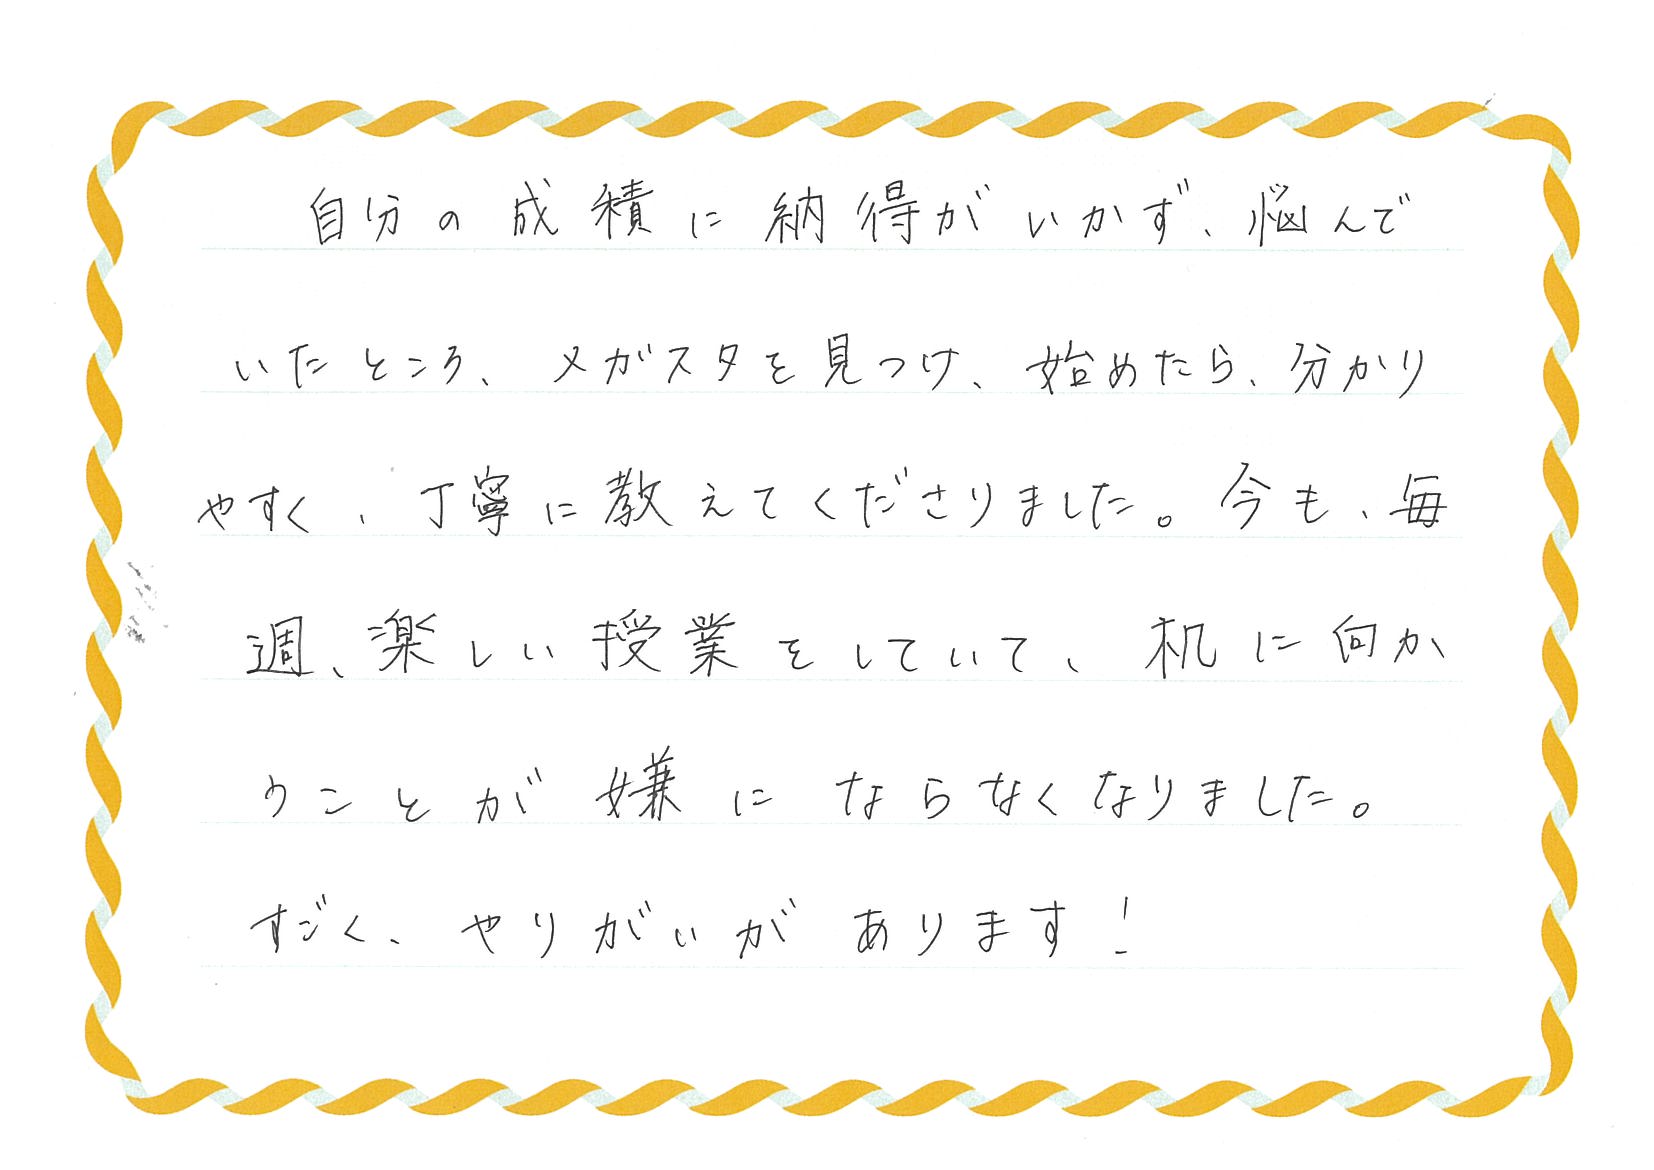 自分の成積に納得がいかず、悩んで
いたところ、メガスタを見つけ、始めたら、分かり
やすく、丁寧に教えてくださりました。今も、毎
週、楽しい授業をしていて、机に向か
うことが嫌にならなくなりました。
すごく、やりがいがあります!